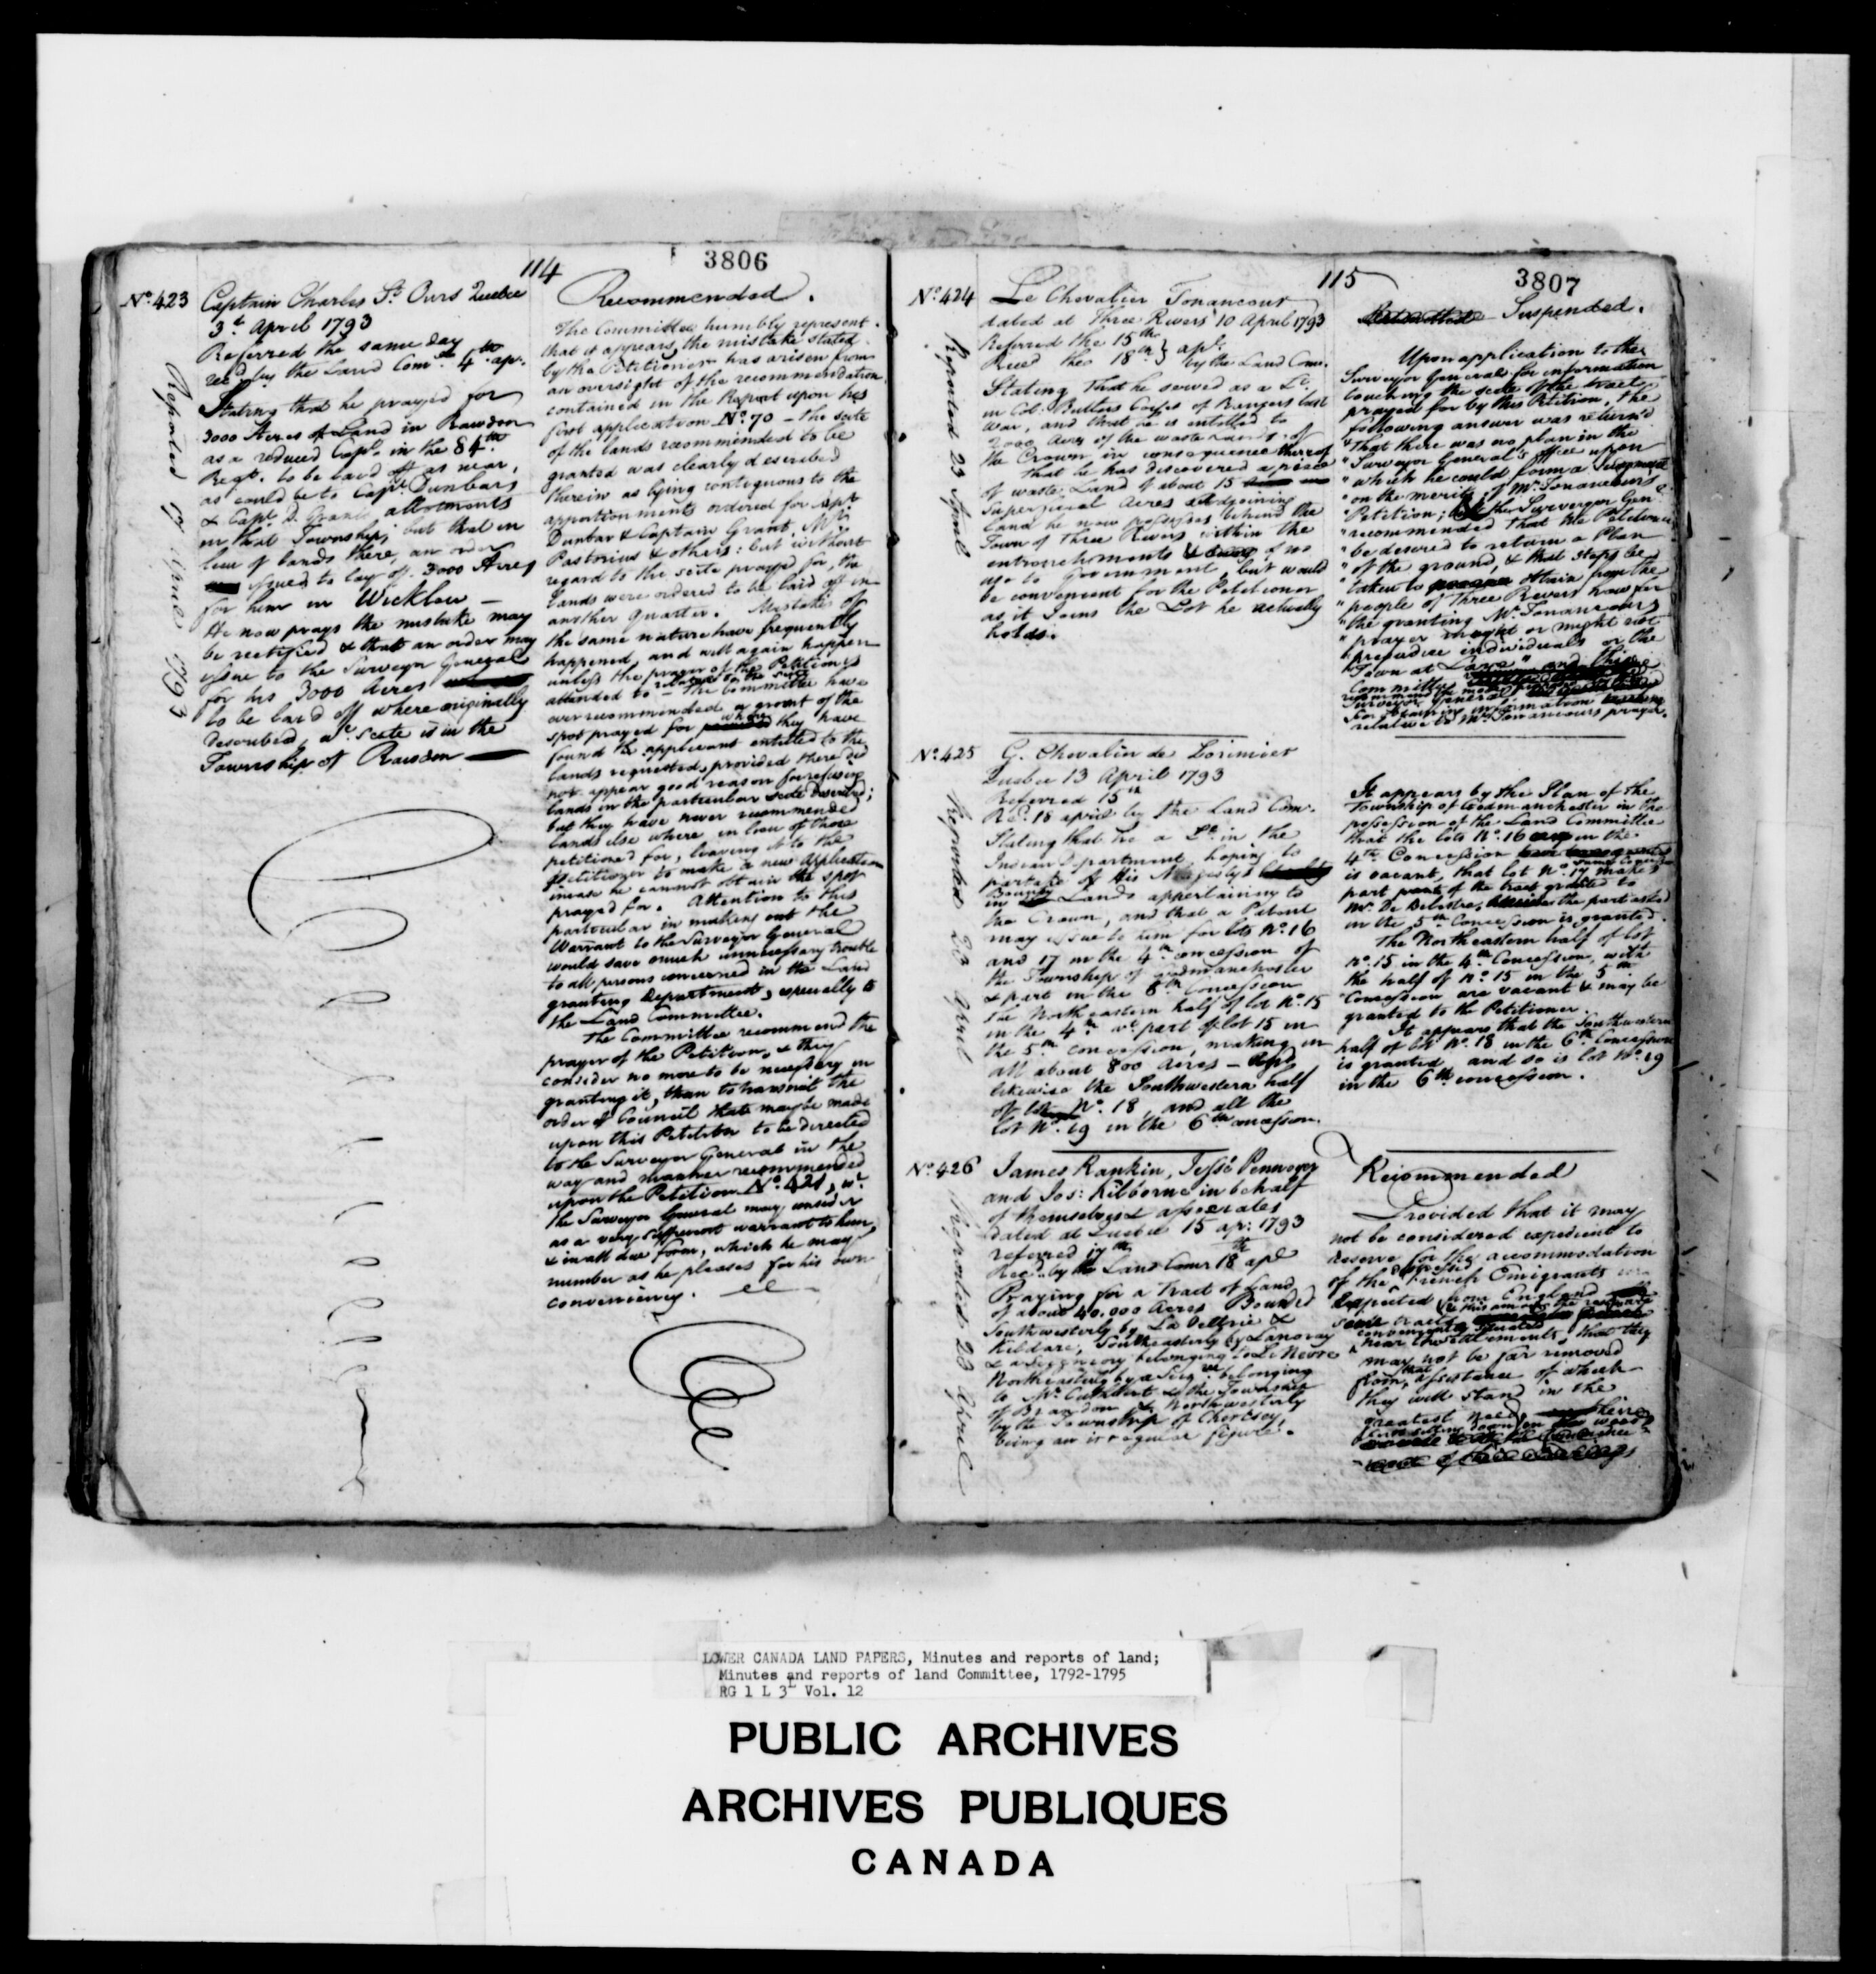 114
3806
No. 423
Captain Charles St. Ours Quebec
3d. April 1793
Referred the same day
rec'd by the Land Comee. 4th. apr.
Stating that he prayed for
3000 Acres of Land in Rawdon
as a reduced Capt. in the 84th.
Regt. to be laid off as near,
as could be to Capt. Dunbars
& Capt. D. Grants allotments
in that Township; but that in
lieu of lands there, an order
issued to lay off 3000 Acres
for him in Wicklow —
He now prays the mistake may
be rectified & that an order may
issue to the Surveyor General
for his 3000 Acres
to be laid off where originally
described, wc. scite is in the
Township of Rawdon —
Reported 9 April 1793
Recommended.
The Committee humbly represent
that it appears, the mistake stated
by the Petitioner has arisen from
an oversight of the recommendation
contained in the Report upon his
first application No. 70 — the scite
of the lands recommended to be
granted was clearly described
therein as lying contiguous to the
apportionments ordered for Capt.
Dunbar & Captain Grant, Mr.
Pastorius & others: but without
regard to the scite prayed for, the
lands were ordered to be laid off in
another Quarter. Mistakes of
the same nature have frequently
happened, and will again happen
unless the prayer of the Petitioners
relative to the scite
attended to — The Committee have
ever recommended a grant of the
spot prayed for when they have
found the applicant entitled to the
lands requested, provided there did
not appear good reason for refusing
lands in the particular scite described;
but they have never recommended
lands else where in lieu of those
petitioned for, leaving it to the
Petitioner to make a new application
incase he cannot obtain the spot
prayed for. Attention to this
particular in making out the
Warrant to the Surveyor General
would save much unnecessary trouble
to all persons concerned in the Land
granting Department, especially to
the Land Committee.
The Committee recommend the
prayer of the Petition, & they
consider no more to be necessary in
granting it, than to transmit the
order of Council that may be made
upon this Petition to be directed
to the Surveyor General in the
way and manner recommended
upon the Petition No. 421, wc.
the Surveyor General may consider
as a very sufficient warrant to him,
& in all due form, which he may
number as he pleases for his own
conveniency.
115
3807
No. 424
Le Chevalier Tonancour
dated at Three Rivers 10 April 1793
Referred the 15th
Rec'd the 18th } apl. by the Land Com.
Stating That he served as a Lt.
in Col: Butlers Corps of Rangers last
war, and that he is entitled to
2000 Acres of the waste lands of
the Crown in consequence thereof
That he has discovered a piece
of waste Land of about 15
superficial Acres adjoining
land he now possesses behind the
Town of Three Rivers within the
entrenchments of no
use to Government, but would
be convenient for the Petitioner
as it Joins the Lot he actually
holds.
Reported 23 April
Suspended.
Upon application to the
Surveyor General for information
touching the scite of the tract
prayed for by this Petition, the
following answer was return'd
"That there was no plan in the
"Surveyor General's office upon
"which he could form a Judgment
"on the merits of Mr. Tonancour's
"Petition; the Surveyor Genl.
"recommended that the Petitioner
"be desired to return a Plan
"of the ground, & that steps be
"taken to obtain from the
"people of Three Rivers how far
"the granting Mr. Tonancours
"prayer might or might not
"prejudice individuals or the
"Town at Large" and this
Committee
recommend the
Surveyor General
for obtaining information
relative to Mr. Tonancours prayer.
No. 425
G. Chevalier de Lorimier
Quebec 13 April 1793
Referred 15th
Rec'd. 18 april by the Land Com.
Stating that he a Lt. in the
Indian Department, hoping to
partake of His Majesty's
Bounty
in Lands appertaining to
the Crown, and that a Patent
may issue to him for lots No. 16
and 17 in the 4th. concession of
the Township of Godmanchester
& part in the 5th Concession
the North eastern half of lot No. 15
in the 4th. wc. part of lot 15 in
the 5th. concession, making in
all about 800 Acres — And
likewise the Southwestern half
of lot No. 18, and all the
lot No. 19 in the 6th concession.
Reported 23 April
It appears by the Plan of the
Township of Godmanchester in the
possession of the Land Committee
that the lots No. 16 in the
4th Concession
is vacant, that lot No. 17 same Concession makes
part of the tract granted to
Mr. De Belestre, the part asked
in the 5th Concession is granted.
The North eastern half of lot
No. 15 in the 4th. Concession, with
the half of No. 15 in the 5th.
Concession are vacant & may be
granted to the Petitioner.
It appears that the Southwestern
half of lot No. 18 in the 6th Concession
is granted and so is lot No. 19
in the 6th concession.
No. 426
James Rankin, Jesse Pennoyer
and Jos: Kilborne in behalf
of themselves & associates
dated at Quebec 15 ap: 1793
referred 17th
Rec'd. by the Land Come 18th apl
Praying for a Tract of Land
of about 40,000 Acres Bounded
Southwesterly by La Valtrie &
Kildare, Southeasterly by Lanoray
& a Seigneury belonging to Le Neore
Northeasterly by a Seigre. belonging
to Mr. Cuthbert & the Township
of Brandon & Northwesterly
by the Township of Chertsey,
being an irregular figure.
Reported 23 April
Recommended
Provided that it may
not be considered expedient to
reserve for the accommodation
of the distressed French Emigrants
expected from England
some tracts
conveniently situated
near the settlements, that they
may not be far removed
from that assistance of which
they will stand in the
greatest need,
first setting down in the woods
LOWER CANADA LAND PAPERS, Minutes and reports of land;
Minutes and reports of land Committee, 1792-1795
RG 1 L 3L Vol. 12
PUBLIC ARCHIVES
ARCHIVES PUBLIQUES
CANADA